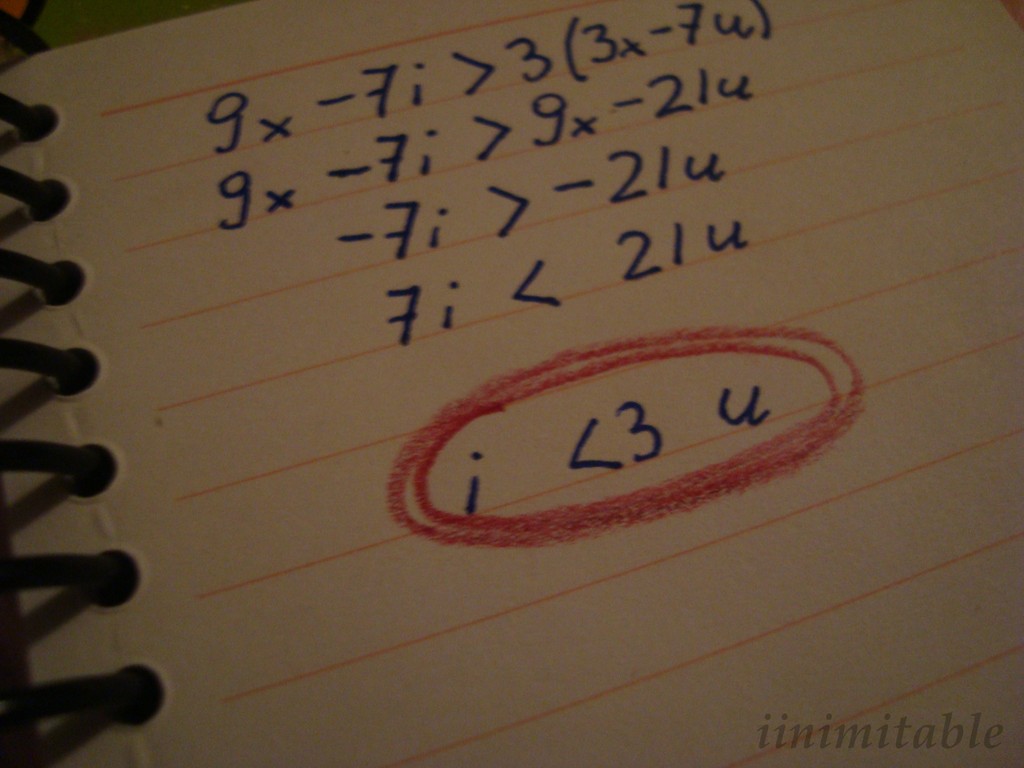 9x -7i > 3(3x-7u)
9x -7i > 9x -21u
-7i > -21u
7i < 21u
i <3 u
iinimitable